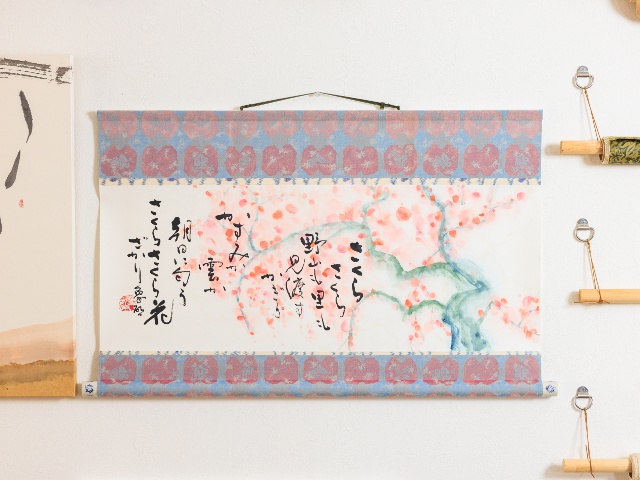 さくら
さくら
野山も里も
見渡す
かぎり
かすみか
雲か
朝日に匂う
さくらさくら花
ざかり